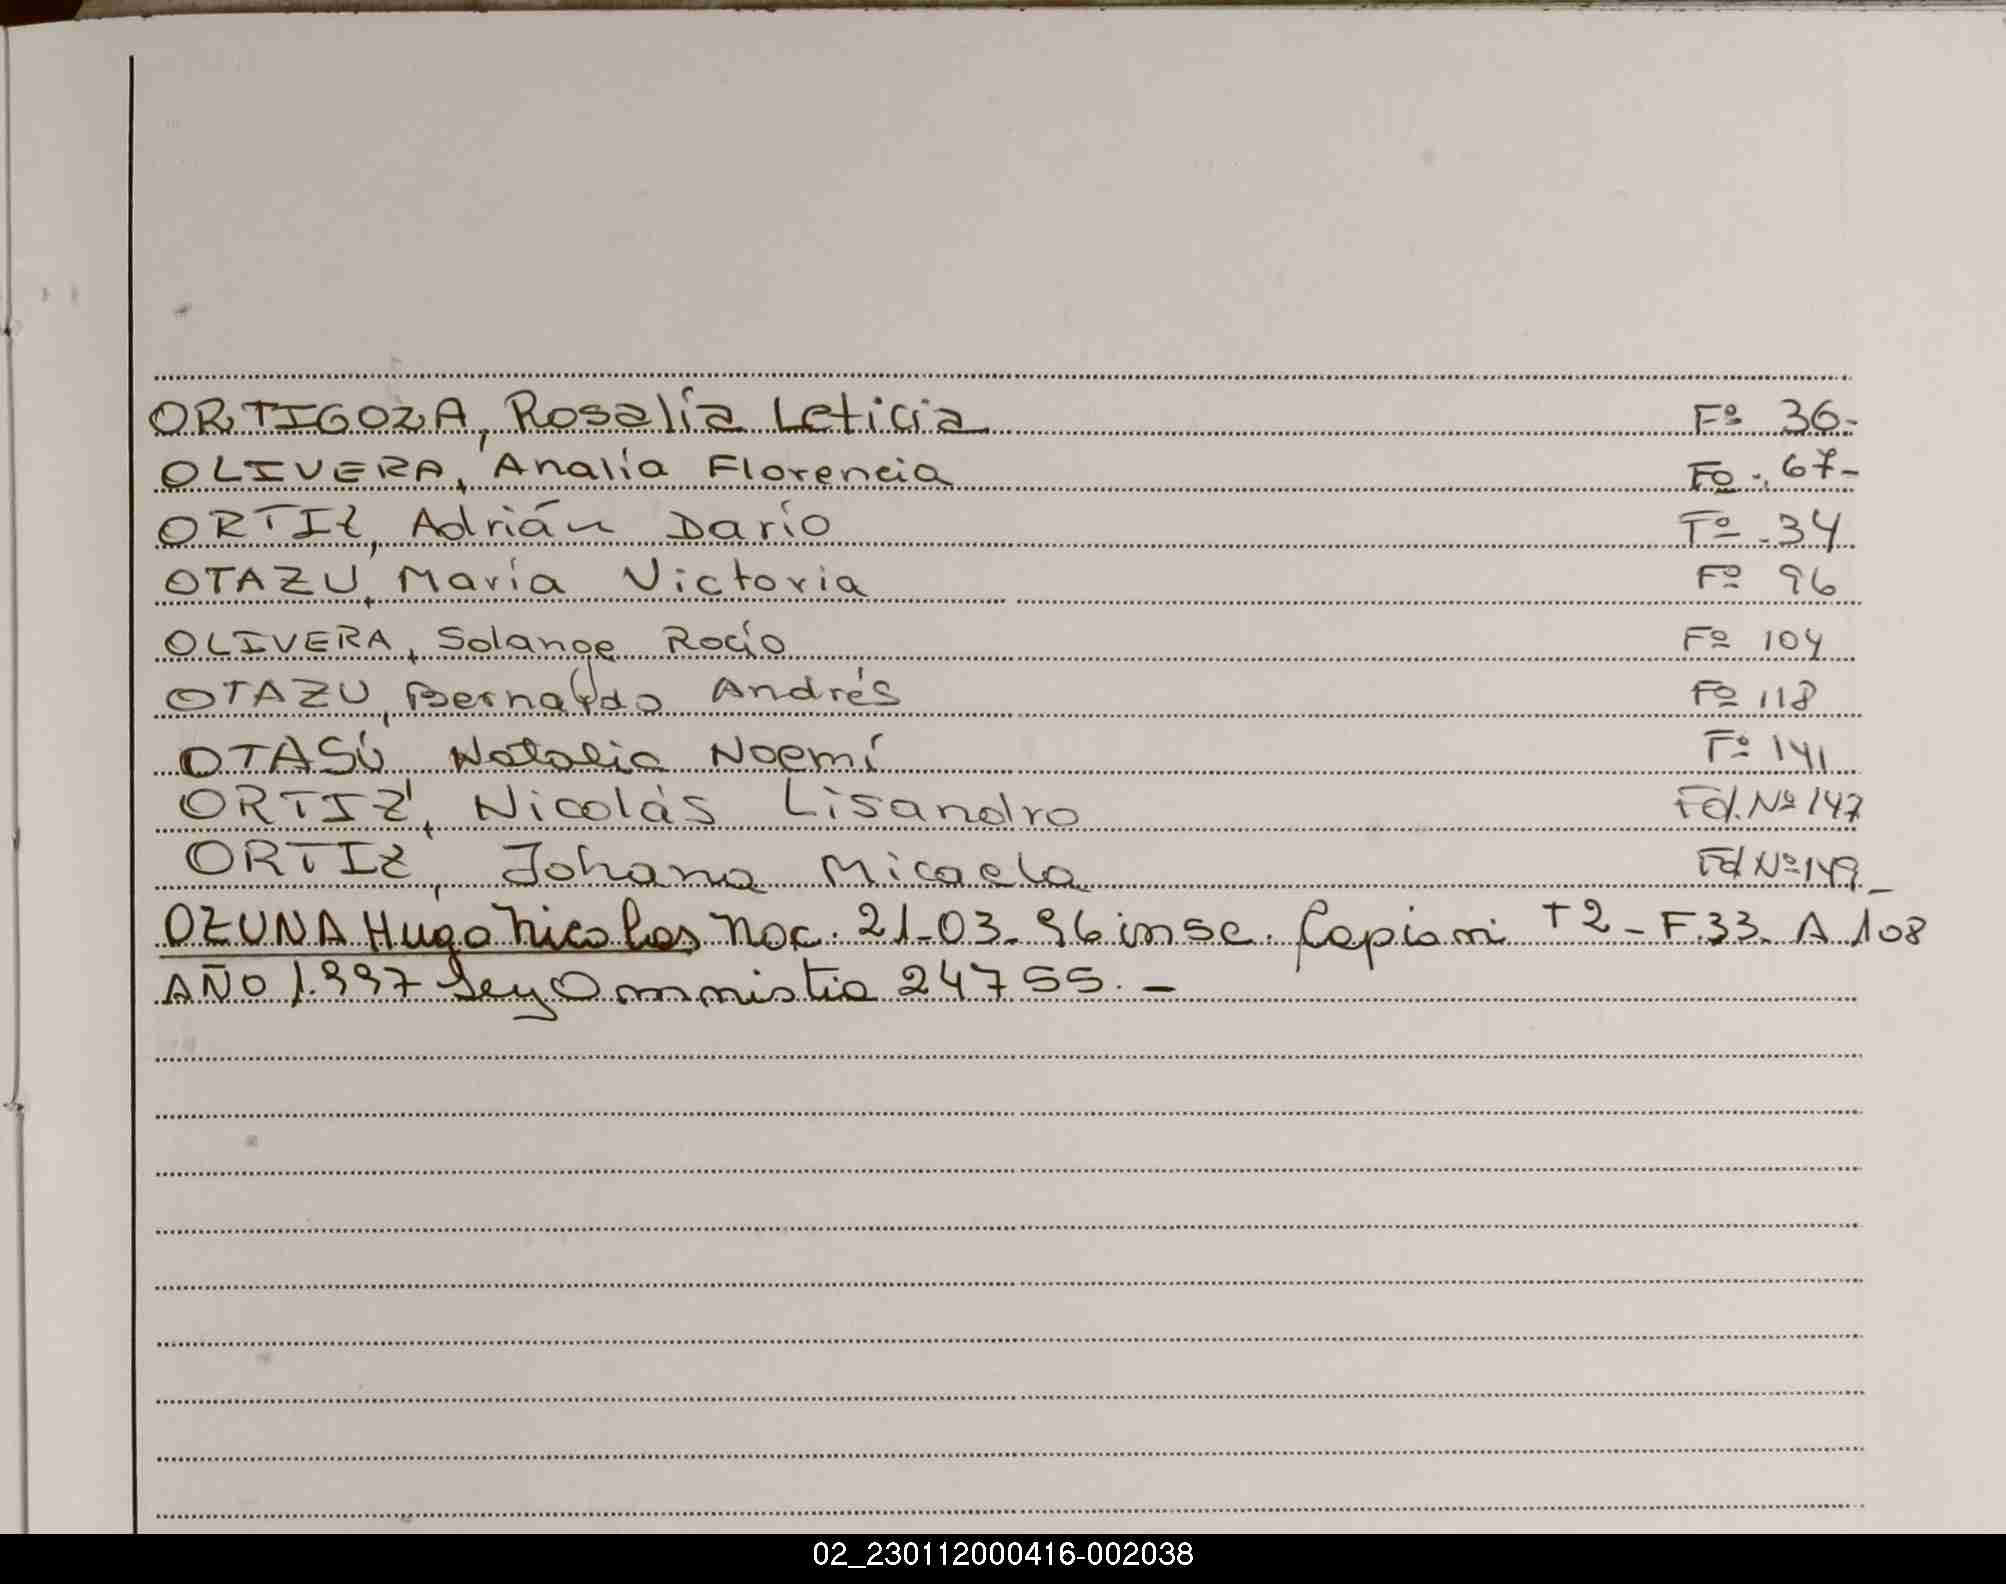 ORTIGOZA, Rosalía Leticia Fº 36-
OLIVERA, Analía Florencia Fº. 67-
ORTIZ, Adrián Darío Fº 34
OTAZU, María Victoria Fº 96
OLIVERA, Solange Rocío Fº 104
OTAZU, Bernardo Andrés Fº 118
OTASÚ Natalia Noemí Fº 141
ORTIZ, Nicolás Lisandro Fol. Nº 147
ORTIZ, Johana Micaela Fol Nº 149_
OZUNA Hugo Nicolas Nac. 21-03-96 insc. Capiovi T2-F.33. A 108
AÑO 1.997 Ley Ommistia 24755.-
02_230112000416-002038